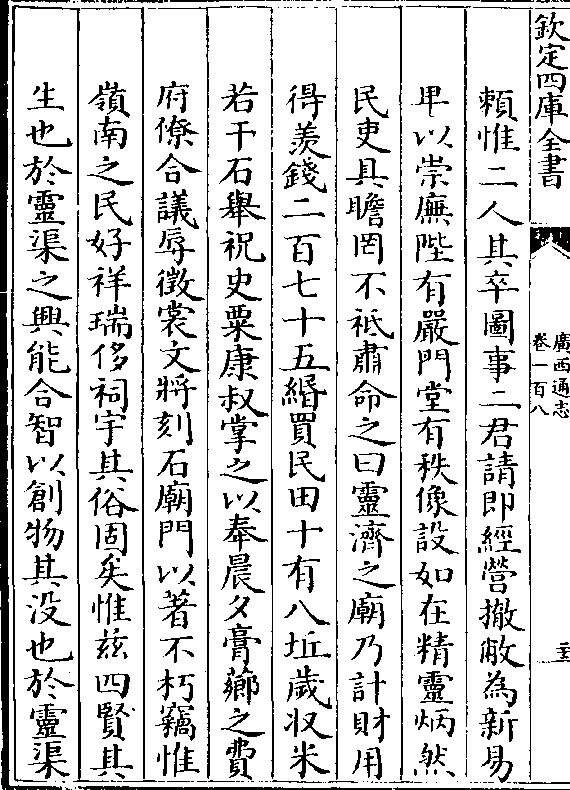 欽定四庫全書
廣西通志
卷一百八
賴惟二人其卒圖事二君請即經營撤敝為新易
卑以崇廡陛有嚴門堂有秩像設如在精靈炳然
民吏具瞻罔不祇肅命之曰靈濟之廟乃計財用
得羨錢二百七十五緡買民田十有八坵歲収米
若干石舉祝史粟康叔掌之以奉晨夕膏薌之費
府僚合議辱徵裳文將刻石廟門以著不朽竊惟
嶺南之民好祥瑞侈祠宇其俗固矣惟兹四賢其
生也於靈渠之興能合智以創物其没也於靈渠